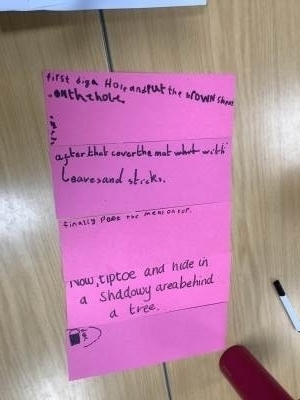 first dig a Hole and put the brown sheet
on the hole
after that cover the mat what with
Leaves and sticks.
finally Pose the meat on top.
Now, tiptoe and hide in
a Shadowy area behind
a tree.